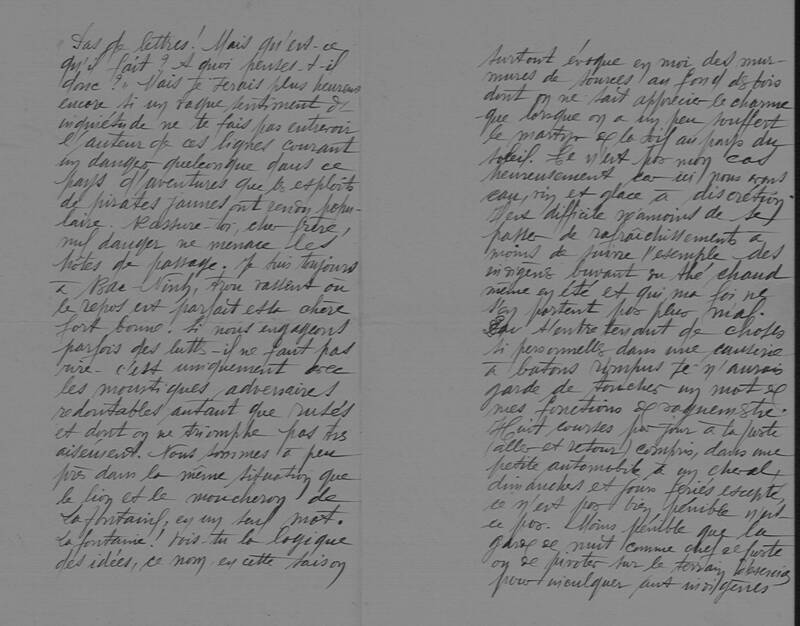 " Pas de lettres ! Mais qu'est-ce
qu'il fait ? A quoi pense-t-il
donc ? " Mais je serais plus heureux
encore si un vague sentiment d'
inquiétude ne te fais pas entrevoir
l'auteur de ces lignes courant
un danger quelconque dans ce
pays d'aventures que les exploits
de pirates jaunes ont rendu popu-
laire. Rassure-toi, cher frère,
nul danger ne menace les
hôtes de passage. Je suis toujours
à Bac-Ninh, trou rassent où
le repos est parfait et la chère
fort bonne. Si nous engageons
parfois des lutts - il ne faut pas
rire - c'est uniquement avec
les moustiques, adversaires
redoutables autant que rusés
et dont on ne triomphe pas très
aisément. Nous sommes à peu
près dans la même situation que
le lion et le moucheron de
Lafontaine, en un seul mot.
Lafontaine ! Vois-tu la logique
des idées, ce nom en cette saison
surtout évoque en moi des mur-
mures de sources au fond de bois
dont on ne sait apprécier le charme
que lorsqu'on a un peu souffert
le martyr de la soif au pays du
soleil. Ce n'est pas mon cas
heureusement car ici nous avons
eau, vin et glace à discrétion.
Il est difficile néamoins de se
passer de rafraîchissements à
moins de suivre l'exemple des
indigènes buvant du thé chaud
même en été et qui ma foi ne
s'en portent pas plus mal.
s'entretenant de choses
si personnelles dans une causerie
à batons rompus je n'aurais
garde de toucher un mot de
mes fonctions de vaguemestre.
Huit courses par jour à la poste
(aller et retour) compris, dans une
petite automobile à un cheval,
dimanches et jours fériés excepté,
ce n'est pas bien pénible n'est
ce pas. Moins pénible que la
garde de nuit comme chef de poste
ou de pivoter sur le terrain
pour inculquer aux indigènes